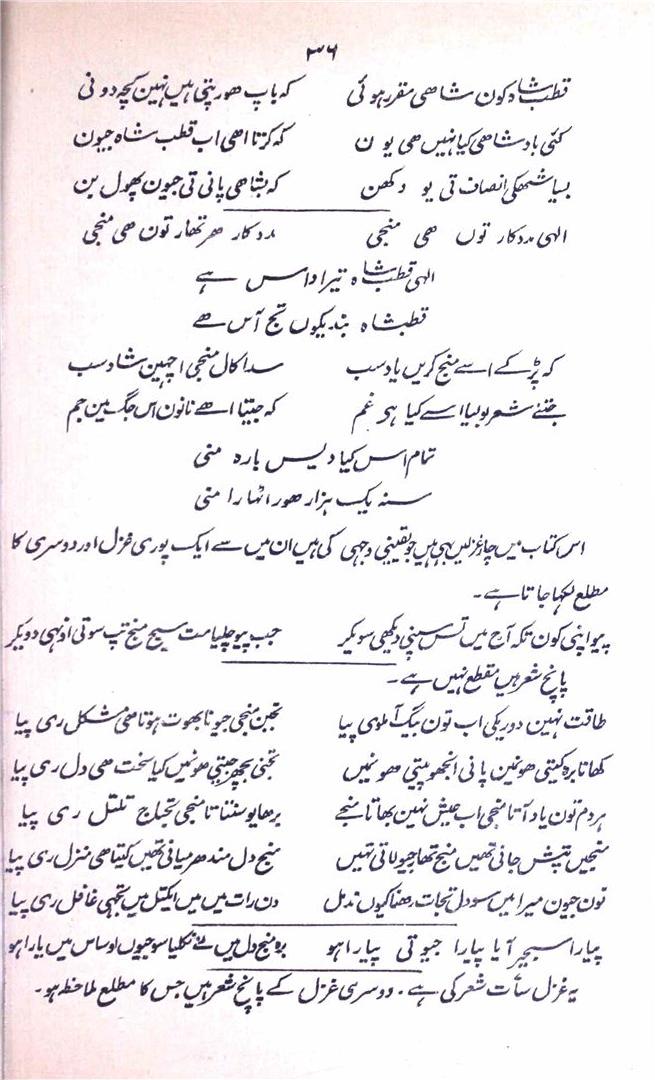 ۳۶
قطب شاہ کون شاھی مقرر ہوئی کہ باپ ھور پتی ہیں نہین کچہ دوئی
کئی بادشاھی کیا نہیں ھی یو ن کہ کرتا اھی اب قطب شاہ جیون
بسیا شمھکی انصاف تی یو دکھن کہ بشاھی پانی تی جیون پھول بن
الہی مددکار توں ھی منجی مددکار ھر تھار تون ھی منجی
الہی قطب شاہ تیرا داس ہے
قطب شاہ بندیکوں تج آس ھے
کہ پڑ کے اسے منج کریں یاد سب سدا کال منجی اچھین شاد سب
جتنے شعر بولیا اسے کیا ہی غم کہ جیتا اھے نانون اس جگ مین جم
تمام اس کیا دیس بارہ منی
سنہ یک ہزار ھور اٹھارا منی
اس کتاب میں چار غزلیں بہی ہیں جو یقینی وجہی کی ہیں ان میں سے ایک پوری غزل اور دوسری کا
مطلع لکہا جاتا ہے۔
پیو اپنی کون تکہ آج میں تس سپنی دیکھی سو یکر جب پیو چلیا مت سیج منج تپ سوتی اذنہی دویکر
پانچ شعر ہیں مقطع نہیں ہے۔
طاقت نہین دوریکی اب تون بیگ آ ملوی پیا تجبن منجی جیونا بھوت ہوتا ھی مشکل ری پیا
کھانا برہ کیتی ھونمین پانی انجھو پیتی ھونمیں تجتی بچھر جیتی ھونمیں کیا سخت ھی دل ری پیا
ہردم تون یاد آتا منجی اب عیش نہین بھاتا منجے برھا یو سنتاتا منجی تجباج تلتل ری پیا
منجیں تپش جانی تھیں منج تھا جیو لاتی تہیں منج دل مندھر میانی تھیں کیتا ھی منزل ری پیا
تون جیون میرا میں سو دل تجات رھنا کیوں ندمل دن رات میں میں ایکتل میں تجہی غافل ری پیا
پیارا سیجپر آیا پیارا جیو تی پیارا ہو برہ منج دل میں تے نکلیا سو جیوں اوساس میں یارا ہو
یہ غزل سات شعر کی ہے۔ دوسری غزل کے پانچ شعر ہیں جس کا مطلع ملاحظہ ہو۔